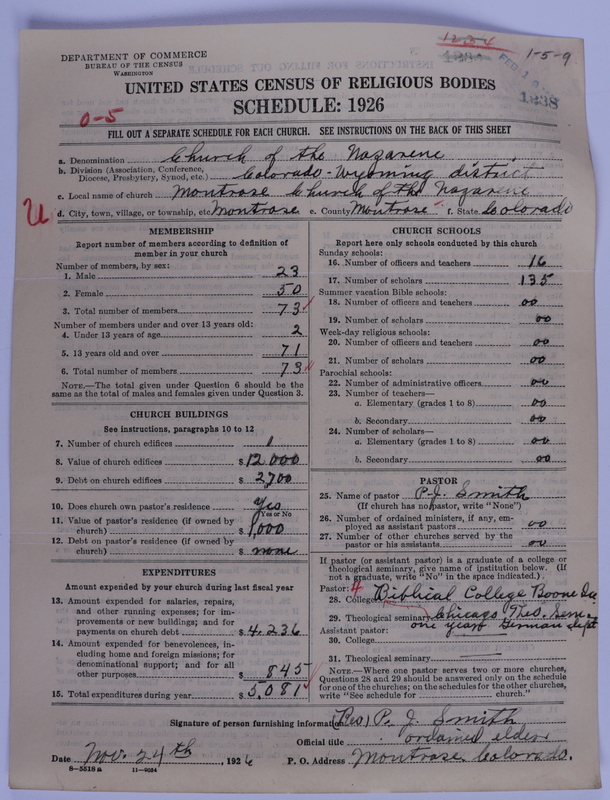 1-5-9
DEPARTMENT OF COMMERCE
BUREAU OF THE CENSUS
WASHINGTON
1838
UNITED STATES CENSUS OF RELIGIOUS BODIES
SCHEDULE: 1926
0-5
FILL OUT A SEPARATE SCHEDULE FOR EACH CHURCH. SEE INSTRUCTIONS ON THE BACK OF THIS SHEET
a. Denomination Church of the Nazarene
b. Division (Association, Conference, Diocese, Presbytery, Synod, etc.) Colorado-Wyoming district
c. Local name of church Montrose Church of the Nazarene
U
d. City, town, village, or township, etc. Montrose e. County Montrose f. State Colorado
MEMBERSHIP
Report number of members according to definition of
member in your church
Number of members, by sex:
1. Male 23
2. Female 50
3. Total number of members 73
Number of members under and over 13 years old:
4. Under 13 years of age 2
5. 13 years old and over 71
6. Total number of members 73
NOTE.—The total given under Question 6 should be
same as the total of males and females given under Question 3.
CHURCH BUILDINGS
See instructions, paragraphs 10 to 12
7. Number of church edifices 1
8. Value of church edifices $12,000
9. Debt on church edifices $2,700
10. Does church own pastor's residence Yes
Yes or No
11. Value of pastor's residence (if owned by
church) $1,000
12. Debt on pastor's residence (if owned by
church) $none
EXPENDITURES
Amount expended by your church during last fiscal year
13. Amount expended for salaries, repairs,
and other running expenses; for im-
provements or new buildings; and for
payments on church debt $4,236
14. Amount expended for benevolences, in-
cluding home and foreign missions; for
denominational support; and for all
other purposes $845
15. Total expenditures during year $5,081
CHURCH SCHOOLS
Report here only schools conducted by this church
Sunday schools:
16. Number of officers and teachers 16
17. Number of scholars 135
Summer vacation Bible schools:
18. Number of officers and teachers oo
19. Number of scholars oo
Week-day religious schools:
20. Number of officers and teachers oo
21. Number of scholars oo
Parochial schools:
22. Number of administrative officers oo
23. Number of teachers—
a. Elementary (grades 1 to 8) oo
b. Secondary oo
24. Number of scholars—
a. Elementary (grades 1 to 8) oo
b. Secondary oo
PASTOR
25. Name of pastor P. J. Smith
(If church has no pastor, write "None")
26. Number of ordained ministers, if any, em-
ployed as assistant pastors oo
27. Number of other churches served by the
pastor or his assistants oo
If pastor (or assistant pastor) is a graduate of a college or
theological seminary, give name of institution below. (If
not a graduate, write "No" in the space indicated.)
Pastor:
28. College Biblical College Boone
29. Theological seminary Chicago Theo. Sem.
one year German dept
Assistant pastor:
30. College
31. Theological seminary
NOTE.—Where one pastor serves two or more churches,
Questions 28 and 29 should be answered only on the schedule
for one of the churches; on the schedules for the other churches,
write "See schedule for church."
Signature of person furnishing information (Rev) P. J. Smith
Official title ordained elder
Date Nov. 24th, 1926 P. O. Address Montrose Colorado.
8-5518 a 11-9034